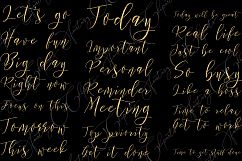 Let's go
Have fun
Big day
Right now
Focus on this
Tomorrow
This week
Today
Important
Personal
Reminder
Meeting
Top priority
Get it done
Today will be great
Real life
Just be cool
So busy
Like a boss
Time to relax
Get to work
Time to get stuff done